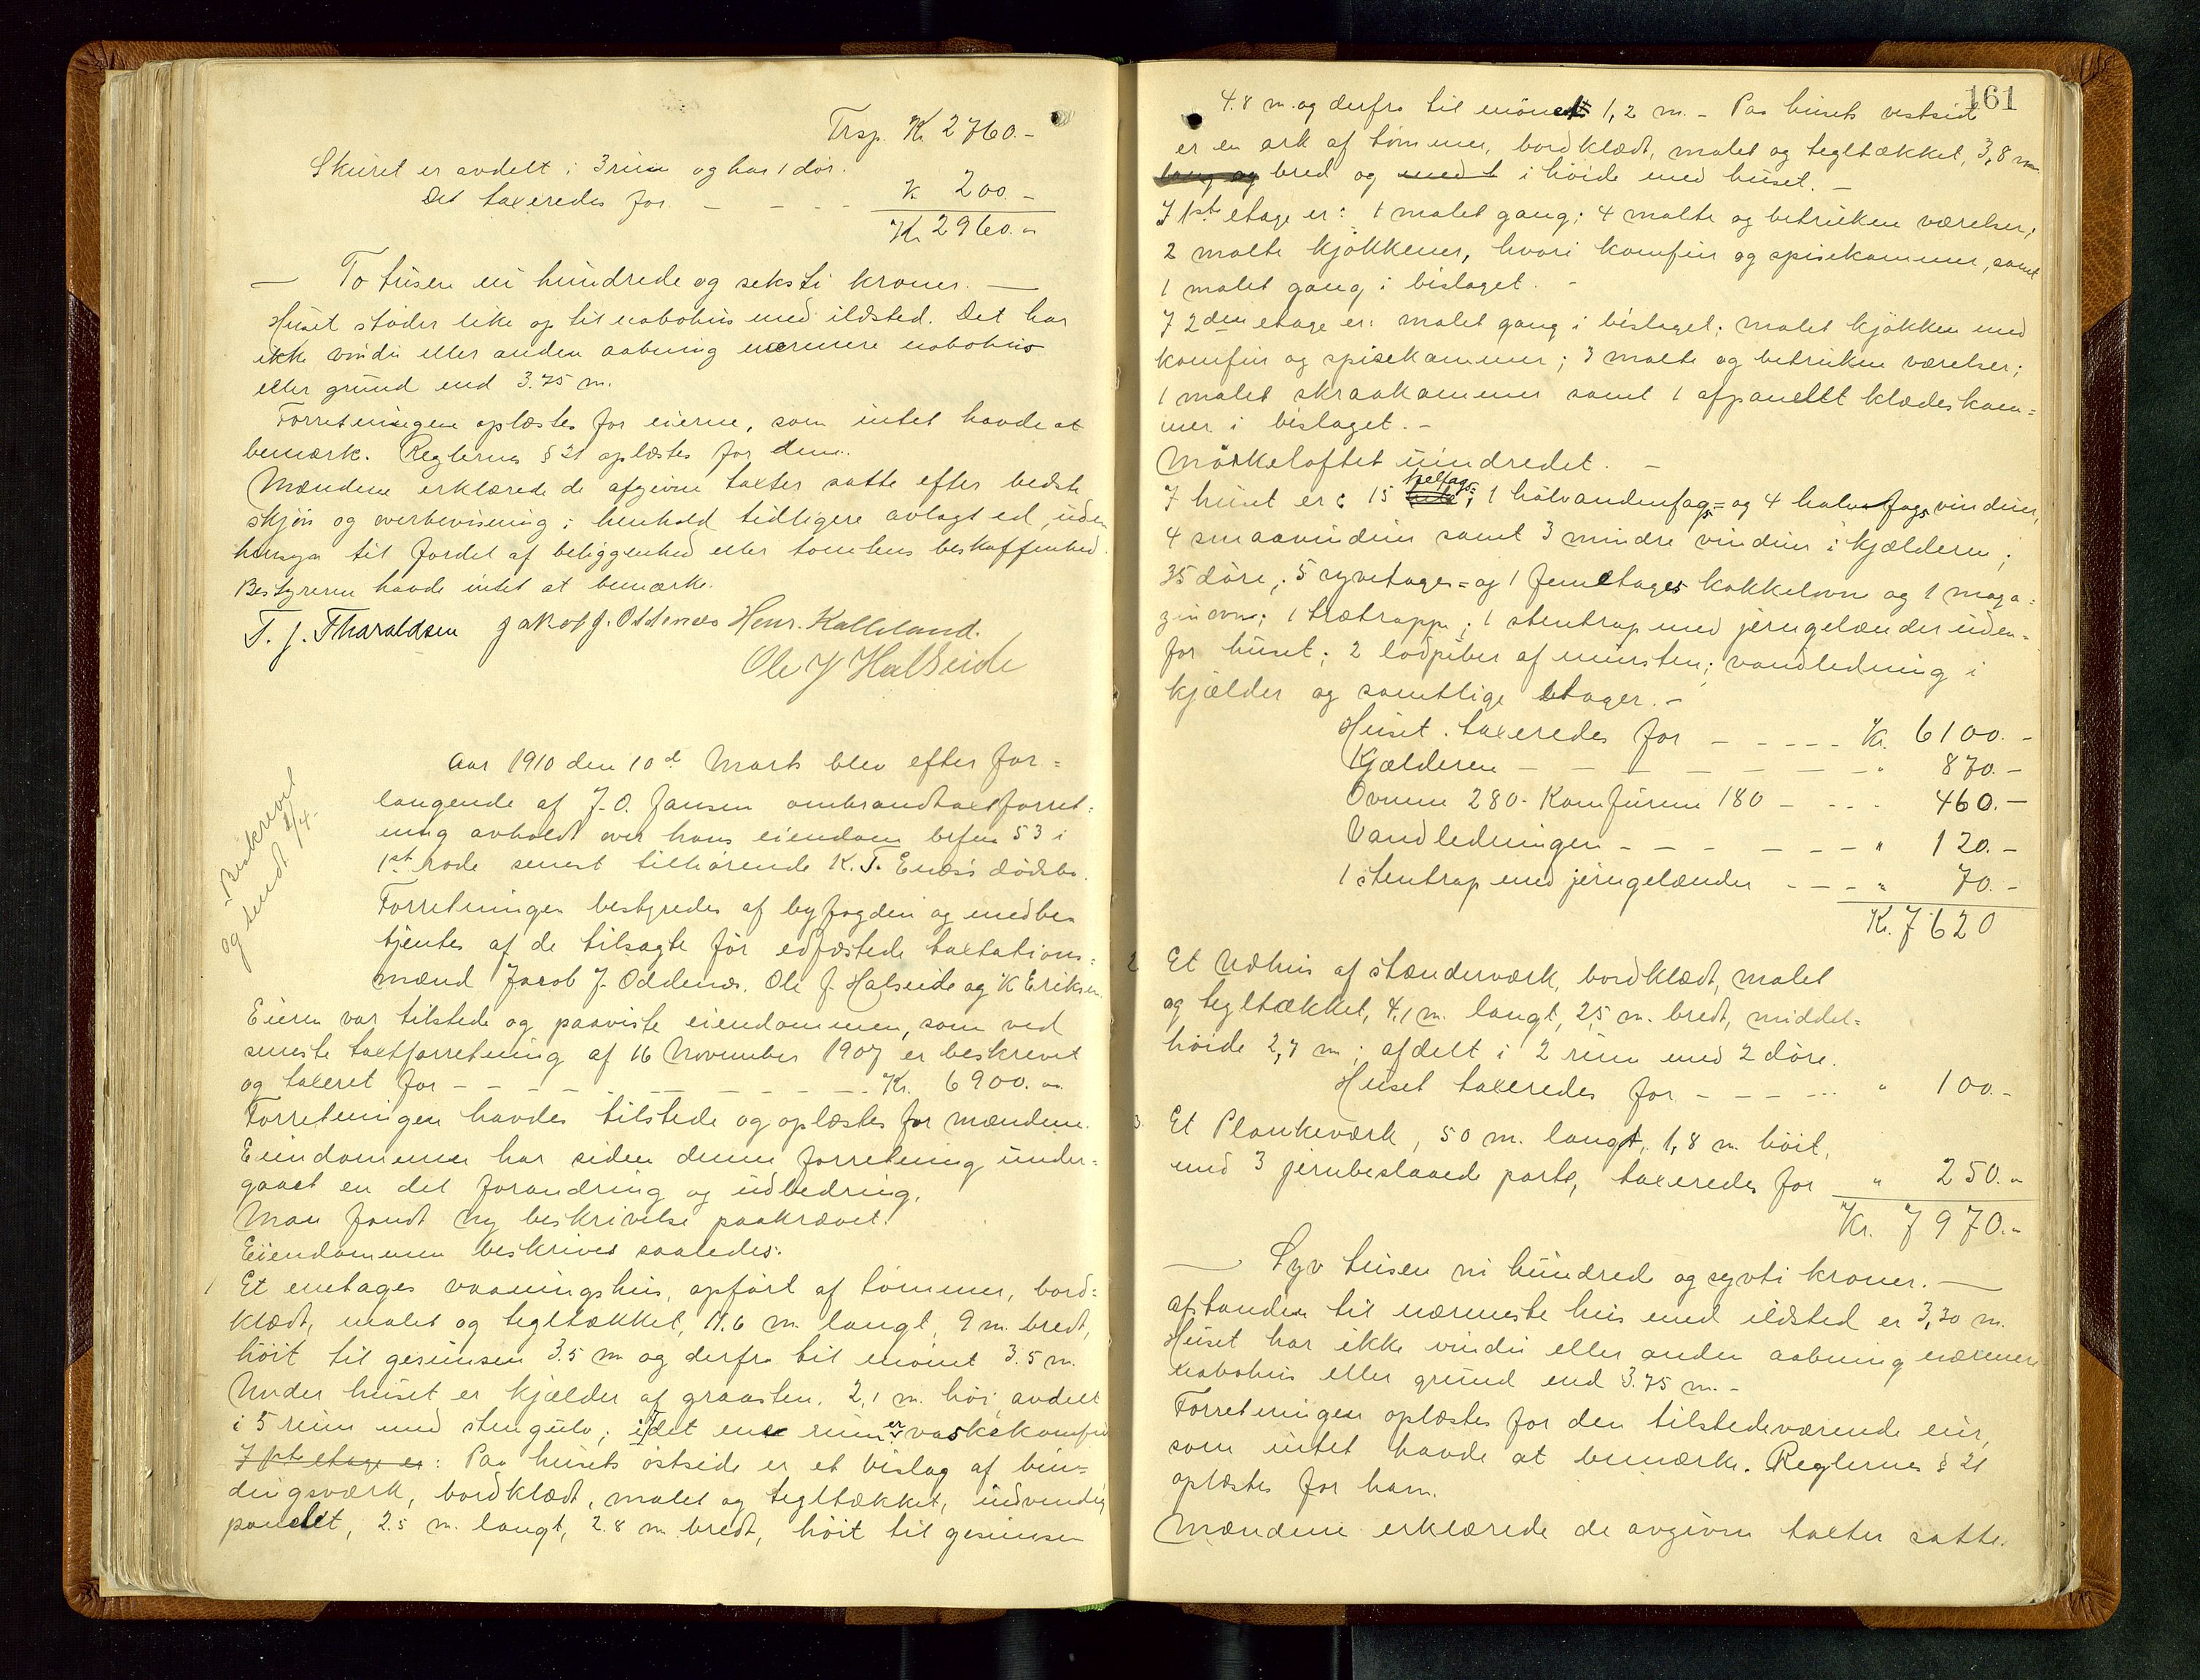 Trsp. Kr 2760.-
Skuret er avdelt i 3 rum og har 1 dør.
Det taxeredes for - - - - K 200.-
Kr 2960.-
— To tusen ni hundrede og seksti kroner. —
Huset støder like op til nabohus med ildsted. Det har
ikke vindu eller anden aabning nærmere nabohus
eller grund end 3.75 m.
Forretningen oplæstes for eierne, som intet havde at
bemærk. Reglernes § 21 oplæstes for dem.
Mændene erklærede de afgivne taxter satte efter bedste
skjøn og overbevisning i henhold tidligere avlagt ed, uden
hensyn til fordel af beliggenhed eller tomtens beskaffenhed.
Bestyreren havde intet at bemærke.
T. J. Tharaldsen Jakob J. Oddenes Henr. Kalleland.
Ole J Halseide
Beskrevet
og sendt 2/4.
Aar 1910 den 10de Marts blev efter for=
langende af J. O. Jansen ombrandtaxtforret=
ning avholdt over hans eiendom brfn 53 i
1st rode senest tilhørende K. T. Enes's dødsbo.
Forretningen bestyredes af byfogden og medbe
tjentes af de tilsagte før edfæstede taxtations=
mænd Jacob J. Oddenes, Ole J. Halseide og K Eriksen.
Eieren var tilstede og paaviste eiendommen, som ved
seneste taxtforretning af 16 November 1907 er beskrevet
og taxeret for - - - - - - - - - Kr. 6900.-
Forretningen havdes tilstede og oplæstes for mændene.
Eiendommen har siden denne forretning under=
gaaet en del forandring og udbedring.
Man fandt ny beskrivelse paakrævet.
Eiendommen beskrives saaledes:
1 Et enetages vaaningshus, opført af tømmer, bord=
klædt, malet og tegltækket, 11.6 m. langt, 9 m. bredt,
høit til gesimsen 3.5 m og derfra til mønet 3.5 m.
Under huset er kjælder af graasten, 2,1 m. høi, avdelt
i 5 rum med stengulv; i det ene rum er vaskekomfur
I 1ste etage er: Paa husets østside er et bislag af bin=
dingsværk, bordklædt, malet og tegltækket, indvendig
panelet, 2.5 m. langt, 2.8 m. bredt, høit til gesimsen
161
4.8 m. og derfra til mønet 1,2 m. - Paa husets vestside
er en ark af tømmer, bordklædt, malet og tegltækket, 3,8 m.
lang og bred og med t i høide med huset. -
I 1st etage er: 1 malet gang; 4 malte og betrukne værelser;
2 malte kjøkkener, hvori komfur og spisekammer, samt
1 malet gang i bislaget. -
I 2den etage er: malet gang i bislaget; malet kjøkken med
komfur og spisekammer; 3 malte og betrukne værelser;
1 malet skraakammer samt 1 afpanelt klædeskam=
mer i bislaget. -
Mørkeloftet uindredet. -
I huset er: 15 helfags=; 1 halvandenfags= og 4 halvfagsvinduer,
4 smaavinduer samt 3 mindre vinduer i kjælderen;
35 døre; 5 syvetages= og 1 femetages kakkelovne og 1 maga=
zinovn; 1 trætrappe; 1 stentrap med jerngelænder uden=
for huset; 2 lødpiber af mursten; vandledning i
kjælder og samtlige etager. -
Huset taxeredes for - - - - - Kr. 6100.-
Kjælderen - - - - - - - - " 870.-
Ovnene 280.- Komfurene 180 - - - - 460.-
Vandledningen - - - - - - - " 120.-
1 stentrap med jerngelænder - - - - " 70.-
Kr. 7620
2 Et Udhus af stænderværk, bordklædt, malet
og tegltækket, 4,1 m. langt, 2,5 m. bredt, middel=
høide 2,7 m; afdelt i 2 rum med 2 døre.
Huset taxeredes for - - - - - " 100.-
3. Et Plankeværk, 50 m. langt, 1,8 m. høit,
med 3 jernbeslaaede porte, taxeredes for " 250.-
Kr. 7970.-
— Syv tusen ni hundrede og sytti kroner. —
Afstanden til nærmeste hus med ildsted er 3,30 m.
Huset har ikke vindu eller anden aabning nærmere
nabohus eller grund end 3.75 m. -
Forretningen oplæstes for den tilstedeværende eier,
som intet havde at bemærke. Reglernes § 21
oplæstes for ham.
Mændene erklærede de avgivne taxter satte.